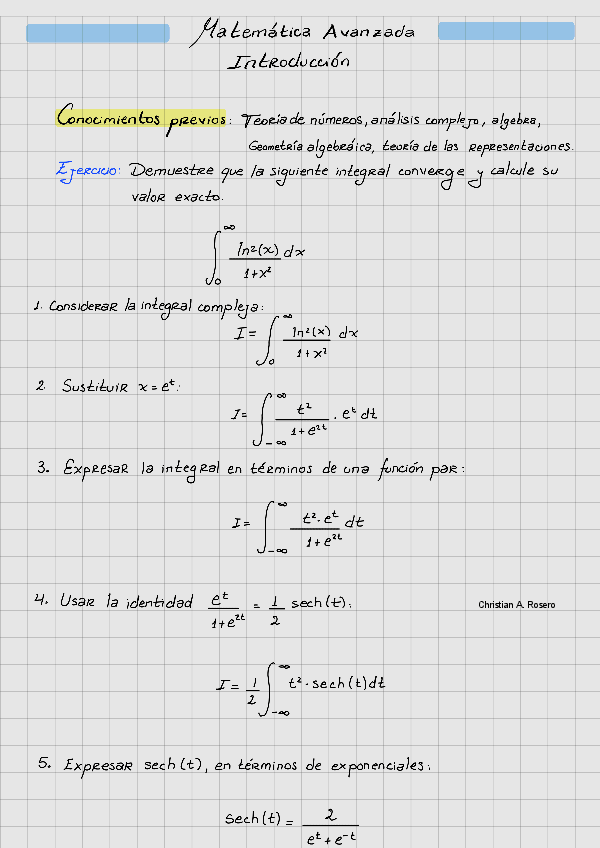 Matemática Avanzada
Introducción
Conocimientos previos: Teoría de números, análisis complejo, algebra,
Geometría algebráica, teoría de las representaciones.
Ejercicio: Demuestre que la siguiente integral converge y calcule su
valor exacto.
∫₀^∞ ln²(x)/(1+x²) dx
1. Considerar la integral compleja:
I = ∫₀^∞ ln²(x)/(1+x²) dx
2. Sustituir x = eᵗ:
I = ∫_{-∞}^{∞} t²/(1+e^{2t}) · eᵗ dt
3. Expresar la integral en términos de una función par:
I = ∫_{-∞}^{∞} t²·eᵗ/(1+e^{2t}) dt
4. Usar la identidad eᵗ/(1+e^{2t}) = 1/2 sech(t):
Christian A. Rosero
I = 1/2 ∫_{-∞}^{∞} t²·sech(t)dt
5. Expresar sech(t), en términos de exponenciales:
sech(t) = 2/(eᵗ+e⁻ᵗ)